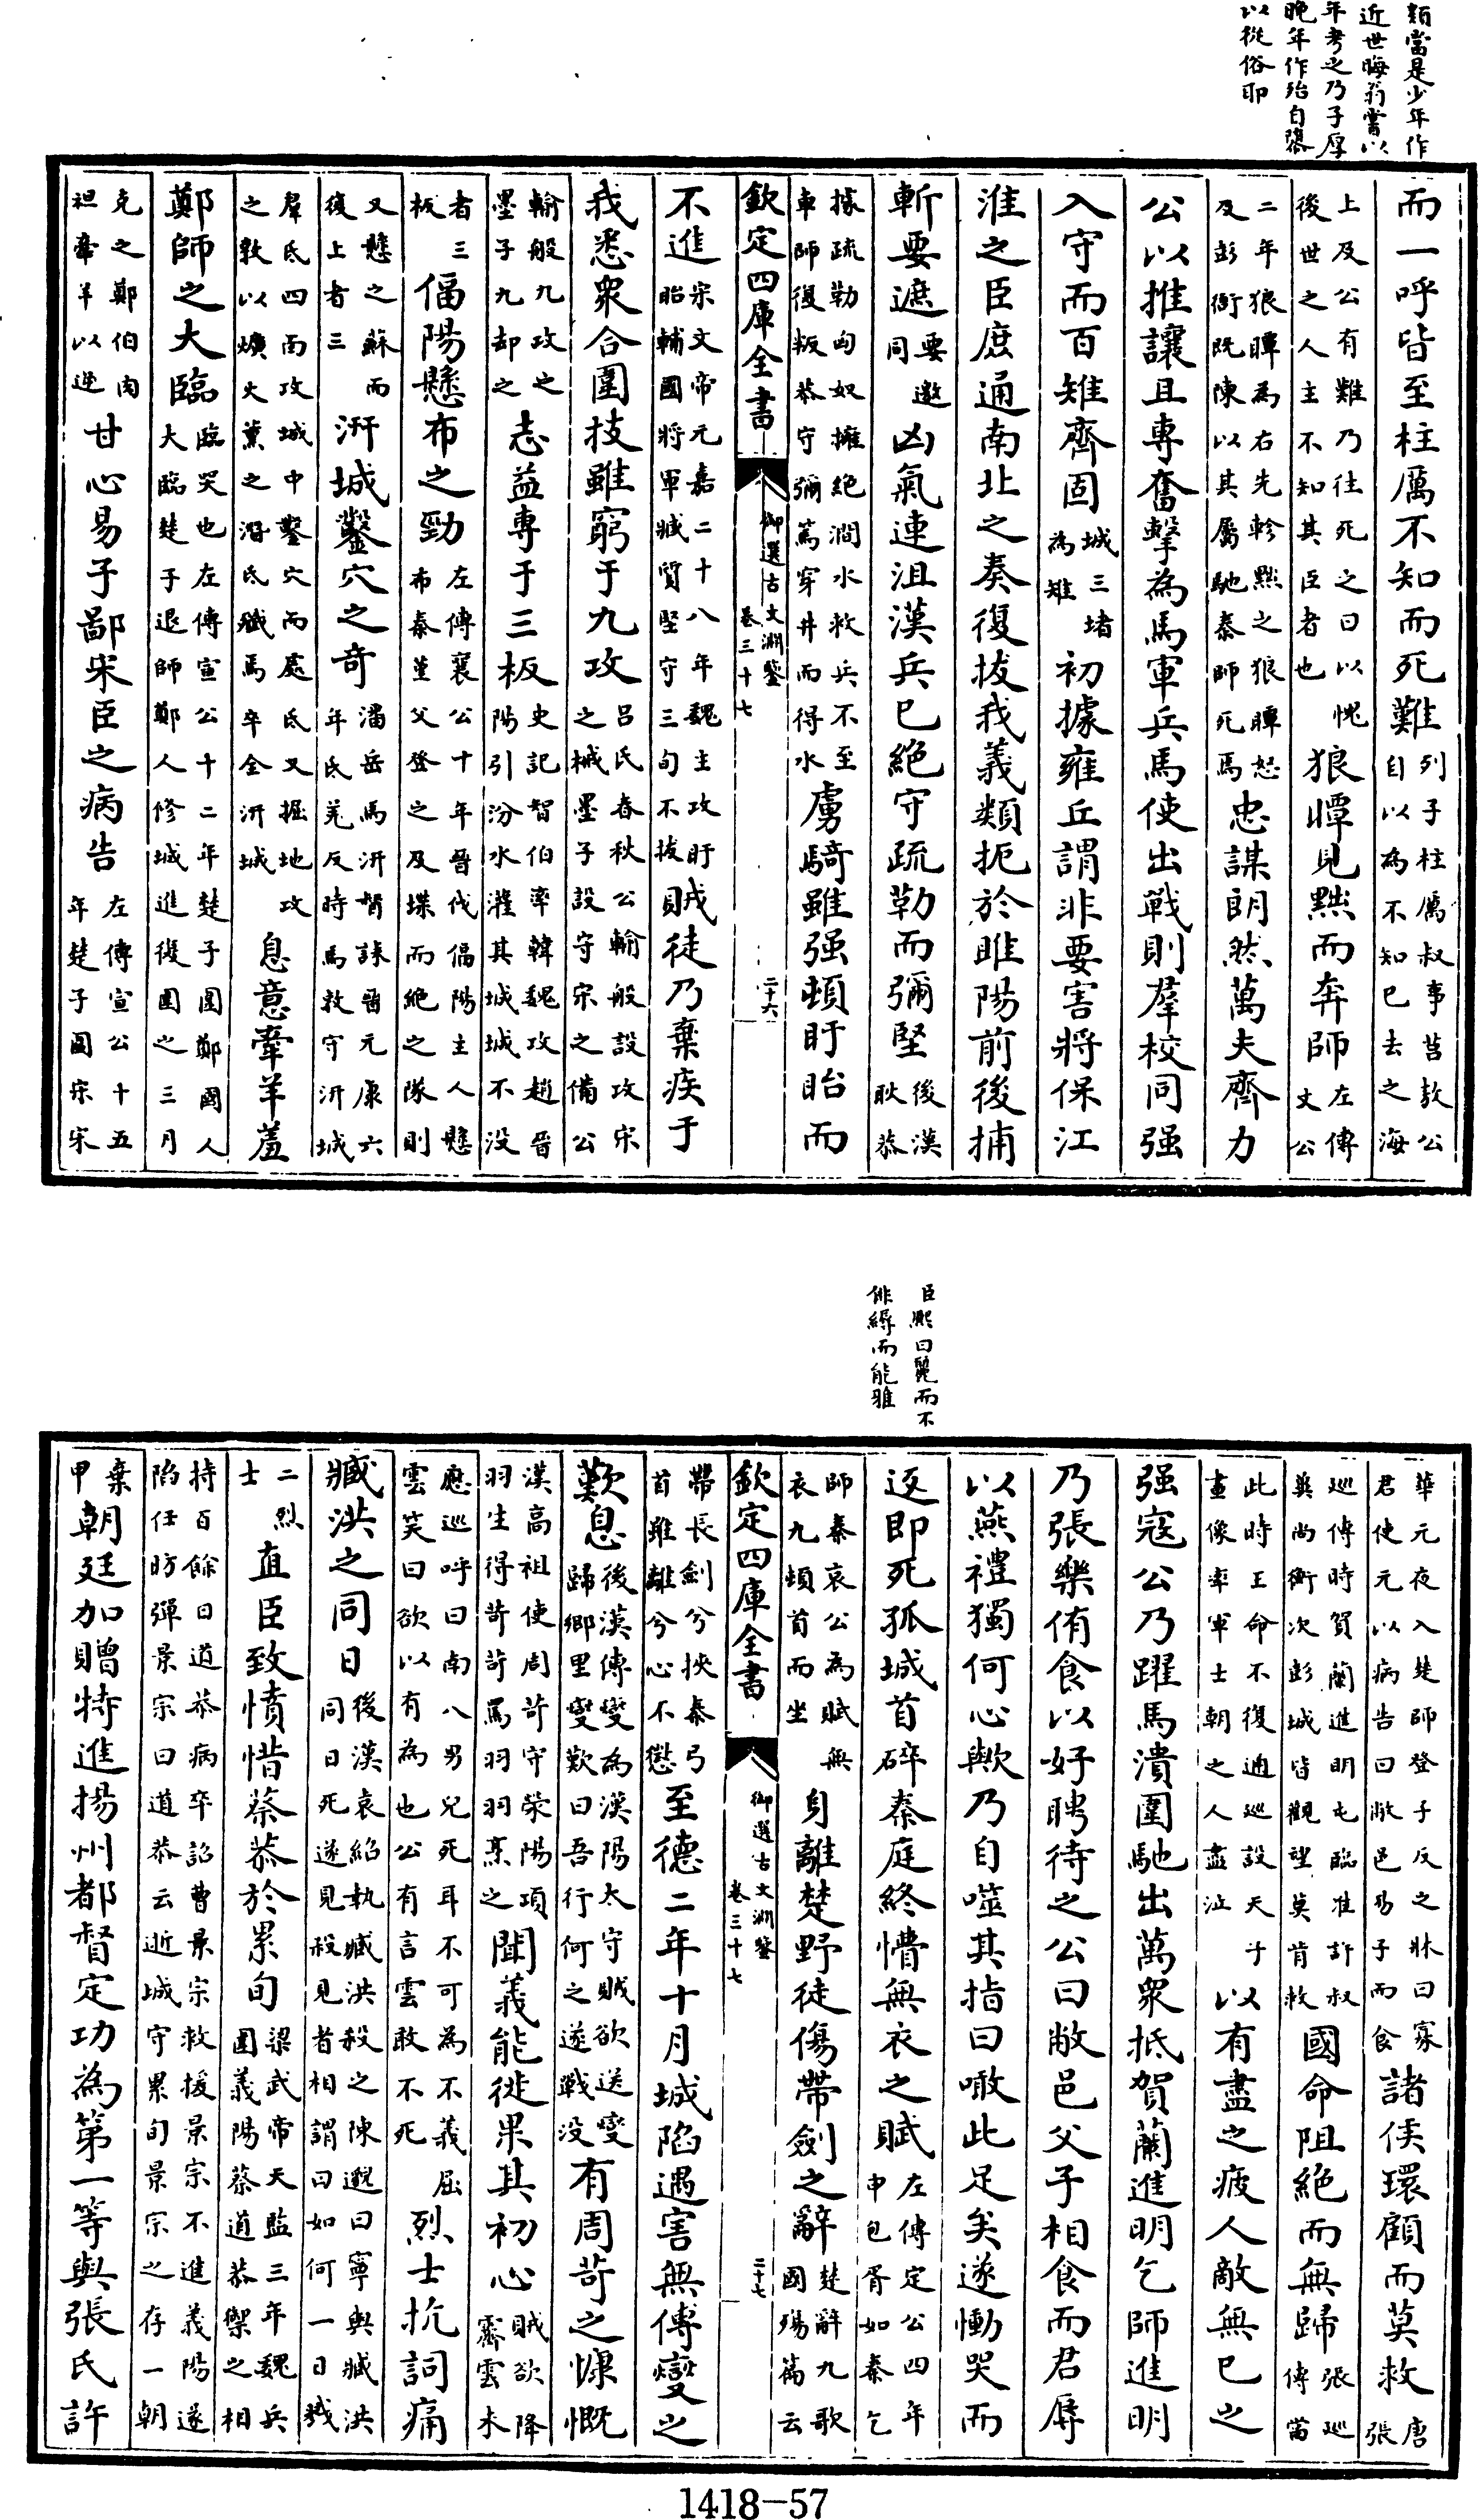 類當是少年作
近世晦翁嘗以
年考之乃子厚
晚年作殆自隳
以從俗耶
而一呼皆至柱厲不知而死難列子柱厲叔事莒敖公自以為不知己去之海
上及公有難乃往死之曰以愧後世之人主不知其臣者也狼瞫見黜而奔師左傳文公
二年狼瞫為右先軫黜之狼瞫怒及彭衙既陳以其屬馳秦師死焉忠謀朗然萬夫齊力
公以推讓且專奮擊為馬軍兵馬使出戰則羣校同强
入守而百雉齊固城三堵為雉初據雍丘謂非要害將保江
淮之臣庶通南北之奏復拔我義類扼於睢陽前後捕
斬要遮要邀同凶氣連沮漢兵已絕守疏勒而彌堅後漢耿恭
據疏勒匈奴擁絕澗水救兵不至車師復叛恭守彌篤穿井而得水虜騎雖强頓盱眙而
欽定四庫全書 御選古文淵鑒 卷三十七 二十六
不進宋文帝元嘉二十八年魏主攻盱眙輔國將軍臧質堅守三旬不拔賊徒乃棄疾于
我悉衆合圍技雖窮于九攻吕氏春秋公輸般設攻宋之械墨子設守宋之備公
輸般九攻之墨子九却之志益專于三板史記智伯率韓魏攻趙晉陽引汾水灌其城城不没
者三板偪陽懸布之勁左傳襄公十年晉伐偪陽主人懸布秦堇父登之及堞而絕之隊則
又懸之蘇而復上者三汧城鑿穴之奇潘岳馬汧督誄晉元康六年氐羌反時馬敦守汧城
羣氐四面攻城中鑿穴而處氐又掘地攻之敦以爌火薰之潛氐殲焉卒全汧城息意牽羊羞
鄭師之大臨臨哭也左傳宣公十二年楚子圍鄭國人大臨楚子退師鄭人修城進復圍之三月
克之鄭伯肉袒牽羊以逆甘心易子鄙宋臣之病告左傳宣公十五年楚子圍宋宋
臣熙曰麗而不
俳縟而能雅
華元夜入楚師登子反之牀曰寡君使元以病告曰敝邑易子而食諸侯環顧而莫救唐張
巡傳時賀蘭進明屯臨淮許叔冀尚衡次彭城皆觀望莫肯救國命阻絕而無歸張巡傳當
此時王命不復通巡設天子畫像率軍士朝之人盡泣以有盡之疲人敵無已之
强寇公乃躍馬潰圍馳出萬衆抵賀蘭進明乞師進明
乃張樂侑食以好聘待之公曰敝邑父子相食而君辱
以燕禮獨何心歟乃自噬其指曰噉此足矣遂慟哭而
返即死孤城首碎秦庭終懵無衣之賦左傳定公四年申包胥如秦乞
師秦哀公為賦無衣九頓首而坐身離楚野徒傷帶劍之辭楚辭九歌國殤篇云
欽定四庫全書 御選古文淵鑒 卷三十七 二十七
帶長劍兮挾秦弓首雖離兮心不懲至德二年十月城陷遇害無傅燮之
歎息後漢傅燮為漢陽太守賊欲送燮歸鄉里燮歎曰吾行何之遂戰没有周苛之慷慨
漢高祖使周苛守滎陽項羽生得苛苛罵羽羽烹之聞義能徙果其初心賊欲降霽雲未
應巡呼曰南八男兒死耳不可為不義屈雲笑曰欲以有為也公有言雲敢不死烈士抗詞痛
臧洪之同日後漢袁紹執臧洪殺之陳邈曰寧與臧洪同日死遂見殺見者相謂曰如何一日戮
二烈士直臣致憤惜蔡恭於累旬梁武帝天監三年魏兵圍義陽蔡道恭禦之相
持百餘日道恭病卒詔曹景宗救援景宗不進義陽遂陷任昉彈景宗曰道恭云逝城守累旬景宗之存一朝
棄甲朝廷加贈特進揚州都督定功為第一等與張氏許
1418-57